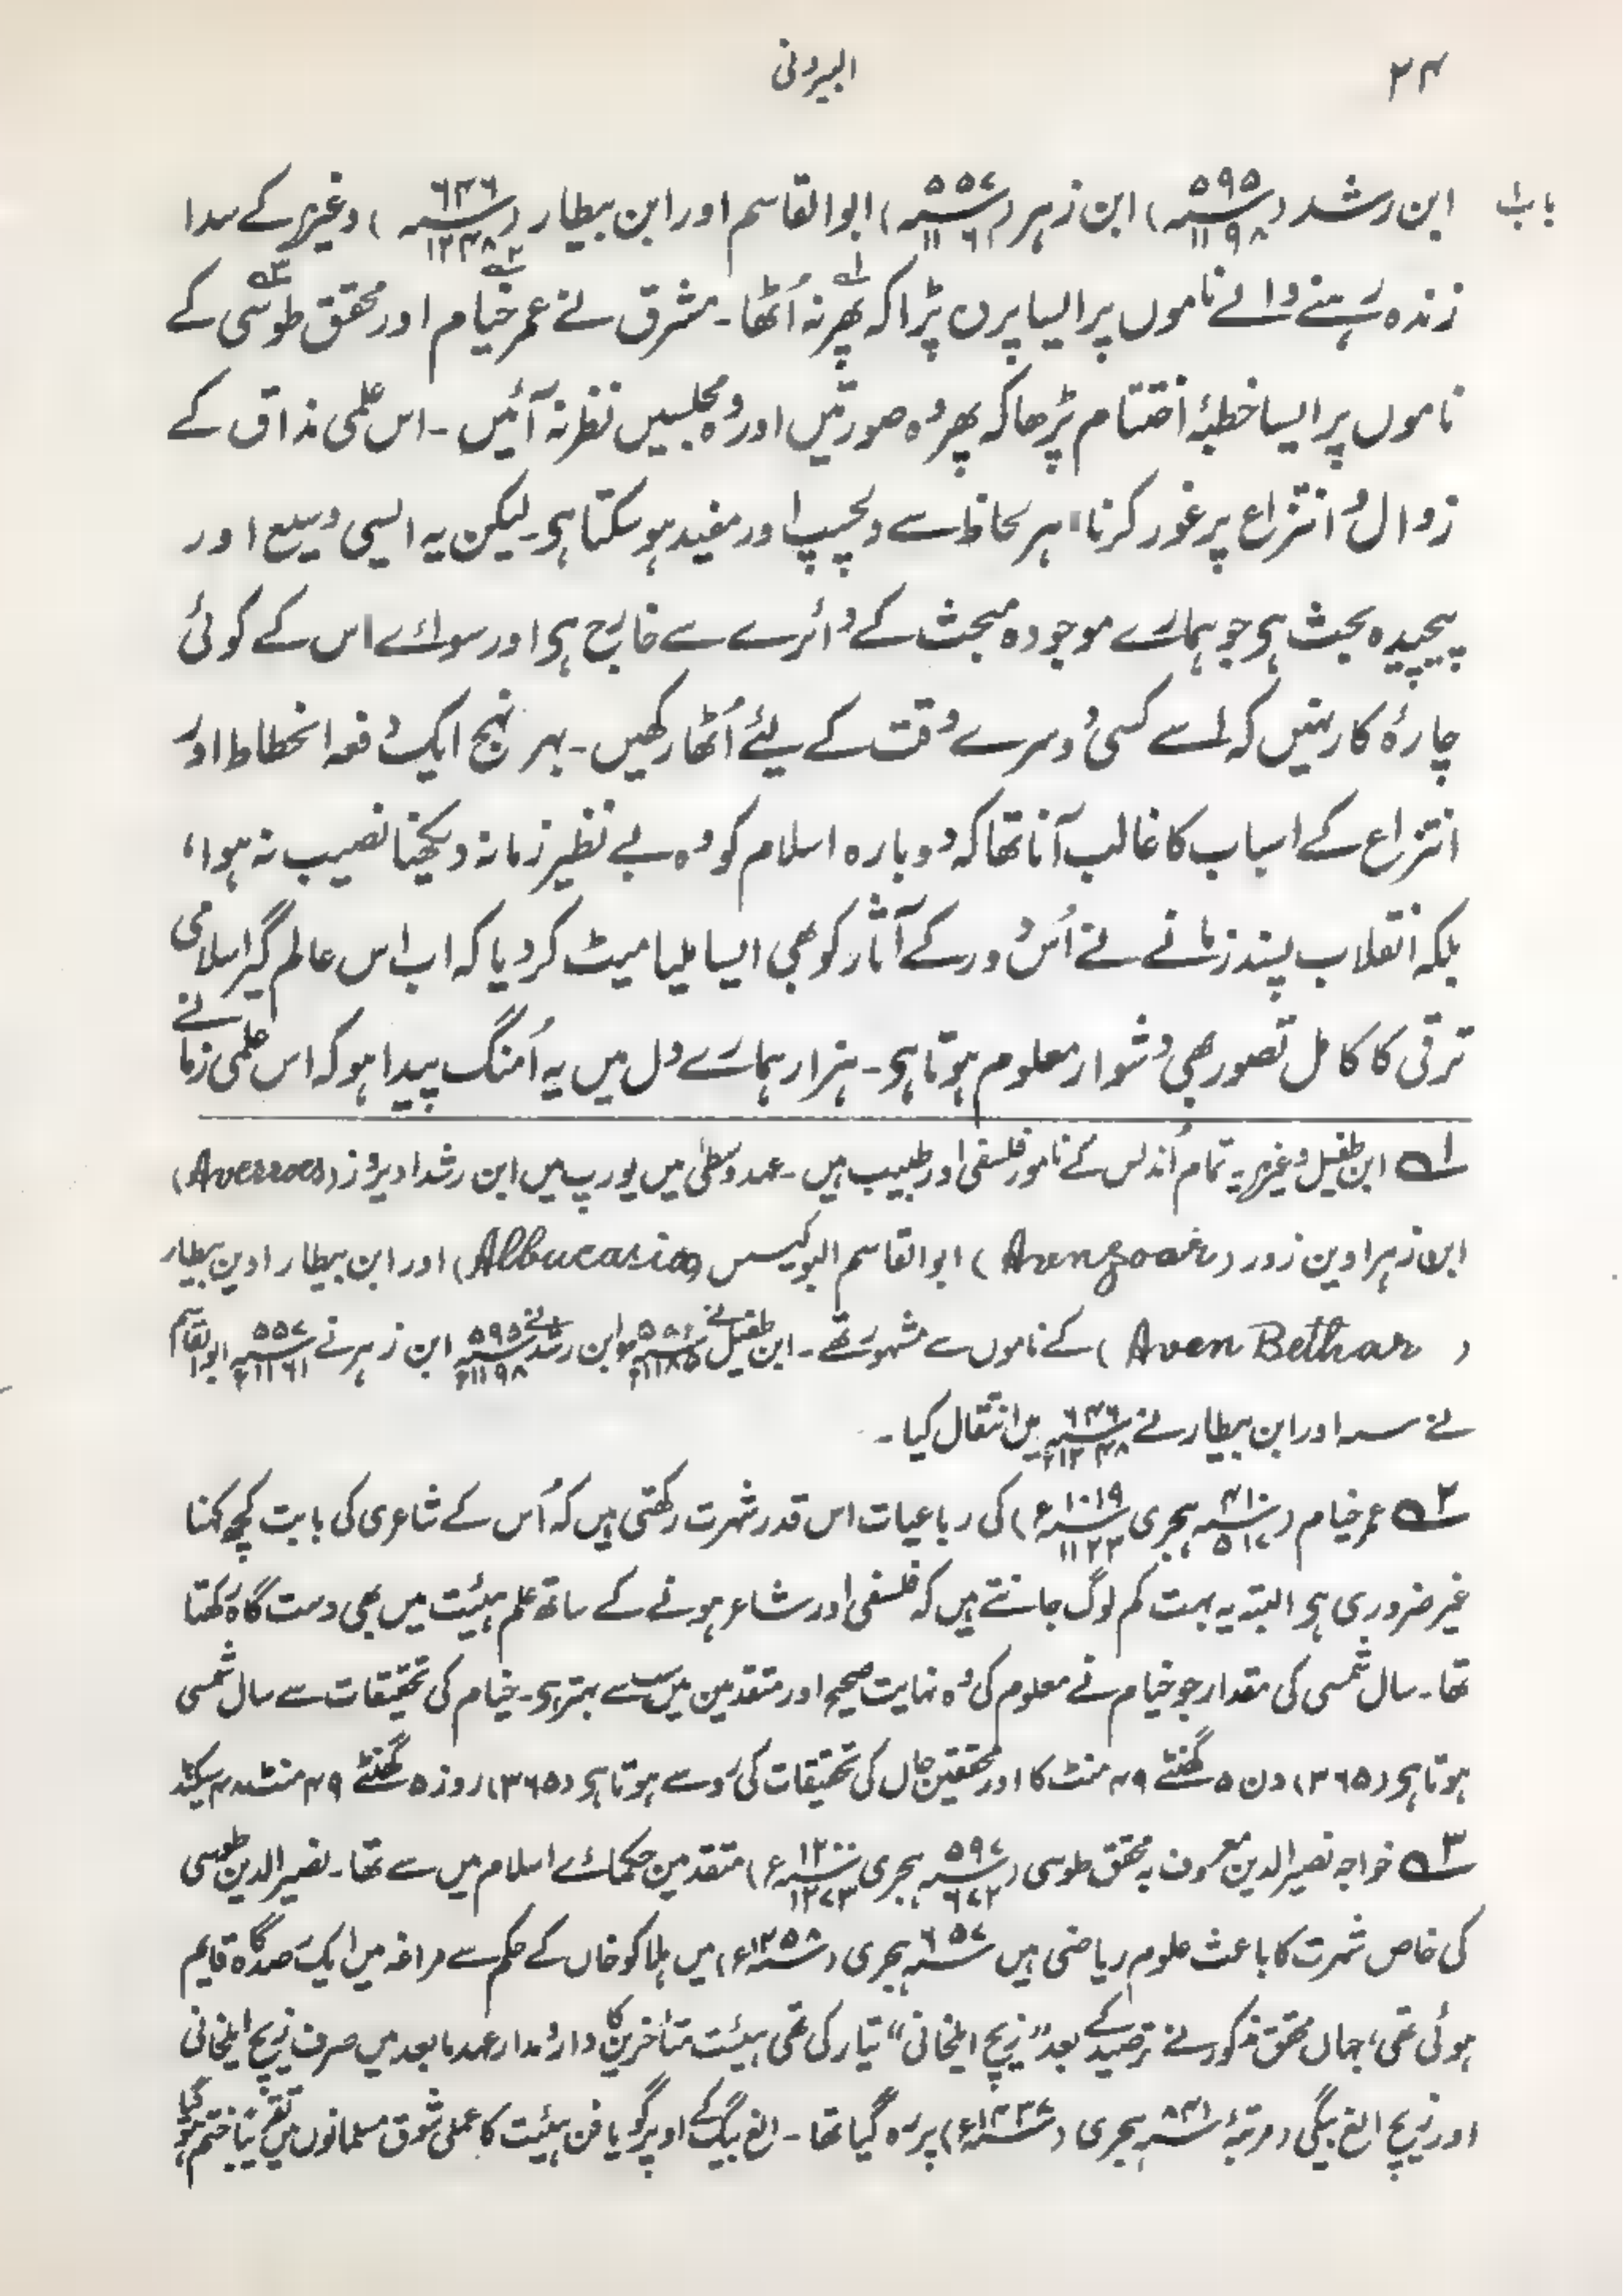 ۲۴
البیرونی
باب ۱
ابن رشد (۵۹۵؁/۱۱۹۸) ابن زہر (۵۵۷؁/۱۱۶۱) ابوالقاسم اور ابن بیطار (۶۴۶؁/۱۲۴۸) وغیرہ کے سدا
زندہ رہنے والے ناموں پر ایسا پردہ پڑا کہ پھر نہ اُٹھا ۱؎ ۔ مشرق نے عمر خیام ۲؎ اور محقق طوسی ۳؎ کے
ناموں پر ایسا خطبۂ اختتام پڑھا کہ پھر وہ صورتیں اور وہ مجلسیں نظر نہ آئیں ۔ اس علمی مذاق کے
زوال و انتزاع پر غور کرنا، ہر لحاظ سے دلچسپ اور مفید ہو سکتا ہی۔ لیکن یہ ایسی وسیع اور
پیچیدہ بحث ہی جو ہمارے موجودہ مبحث کے دائرے سے خارج ہی اور سوائے اس کے کوئی
چارۂ کار نہیں کہ اسے کسی دوسرے وقت کے لیئے اُٹھا رکھیں ۔ بہر نہج ایک دفعہ انحطاط اور
انتزاع کے اسباب کا غالب آنا تھا کہ دوبارہ اسلام کو وہ بے نظیر زمانہ دیکھنا نصیب نہ ہوا،
بلکہ انقلاب پسند زمانے نے اُس دور کے آثار کو بھی ایسا ملیا میٹ کر دیا کہ اب اس عالم گیر اسلامی
ترقی کا کامل تصور بھی دشوار معلوم ہوتا ہی ۔ ہزار ہمارے دل میں یہ اُمنگ پیدا ہو کہ اس علمی زمانے
۱؎ ابن طفیل وغیرہ یہ تمام اُندلس کے نامور فلسفی اور طبیب ہیں ۔ عہد وسطٰی میں یورپ میں ابن رشد ادیروز (Averroes)
ابن زہر اوین زور (Avengoar) ابوالقاسم البوکیسس (Albucasis) اور ابن بیطار اوین بیطار
(Aven Bethar) کے ناموں سے مشہور تھے ۔ ابن طفیل نے ۵۸۱؁/۱۱۸۵ء ابن رشد نے ۵۹۵؁/۱۱۹۸ء ابن زہر نے ۵۵۷؁/۱۱۶۱ء ابوالقاسم
نے سنہ اور ابن بیطار نے ۶۴۶؁/۱۲۴۸ء میں انتقال کیا ۔
۲؎ عمر خیام (۴۱۰؁/۵۱۷ ہجری ۱۰۱۹؁/۱۱۲۳ء) کی رباعیات اس قدر شہرت رکھتی ہیں کہ اُس کے شاعری کی بابت کچھ کہنا
غیر ضروری ہی البتہ یہ بہت کم لوگ جانتے ہیں کہ فلسفی اور شاعر ہونے کے ساتھ علم ہیئت میں بھی دست گاہ رکھتا
تھا ۔ سال شمسی کی مقدار جو خیام نے معلوم کی وہ نہایت صحیح اور متقدمین میں سب سے بہتر ہی ۔ خیام کی تحقیقات سے سال شمسی
ہوتا ہی (۳۶۵) دن ۵ گھنٹے ۴۹ منٹ کا اور محققین حال کی تحقیقات کی رو سے ہوتا ہی (۳۶۵) روز ۵ گھنٹے ۴۹ منٹ ۴۸ سیکنڈ
۳؎ خواجہ نصیر الدین معروف بہ محقق طوسی (۵۹۷؁/۶۷۲ ہجری ۱۲۰۰؁/۱۲۷۳ء) متقدمین حکمائے اسلام میں سے تھا ۔ نصیر الدین طوسی
کی خاص شہرت کا باعث علوم ریاضی ہیں ۶۵۷؁ ہجری (۱۲۵۸؁ء) میں ہلاکو خاں کے حکم سے مراغہ میں ایک رصدگاہ قایم
ہوئی تھی، جہاں محقق مذکور نے ترصید کے بعد "زیج ایلخانی" تیار کی تھی ہیئت متأخرین کا دار و مدار عہد ما بعد میں صرف زیج ایلخانی
اور زیج الغ بیگی (مرتبۂ ۸۴۱؁ ہجری (۱۴۳۷؁ء) پر رہ گیا تھا ۔ الغ بیگ کے اوپر گویا فن ہیئت کا عملی شوق مسلمانوں میں تقریباً ختم ہو گیا